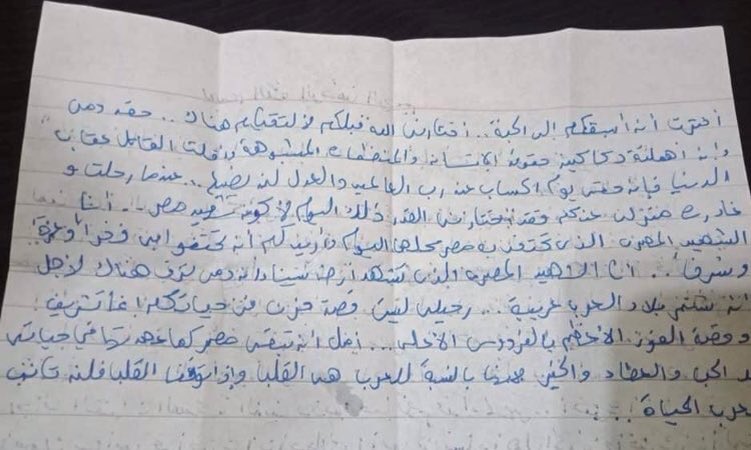 اخترت أن أسبقكم إلى الجنة .. اختارني الله قبلكم لألتقيكم هناك .. حقه دمي
وإن أهملته محاكم حقوق الإنسان والمنظمات المشبوهة وأفلت القاتل عقاب
الدنيا فإنه حقي يوم الحساب عند رب العالمين والعدل لن يضيع .. عندما رحلت و
غادرت منزلي عنكم فقد اختارني القدر ذلك اليوم لأكون شهيد مصر .. أنا
الشهيد المصري الذي تحتفي به مصر كلها اليوم وأريدكم أن تحتفوا بي فخراً وعزة
وشرفاً .. أنا الشهيد المصري الذي تشهد أرض سيناء أن دمي نزف هناك لأجل
أن تنتصر بلاد العرب عربية ... رحيلي ليس قصة حزن من حياتكم إنما تشريف
وقصة الفوز الأعظم بالفردوس الأعلى ... أمل أن تبقى مصر كما عهدتها في حياتي
الحب والعطاء والخير مصر بالنسبة للعرب هي القلب وإذا توقف القلب فلن تكتب
للعرب الحياة!